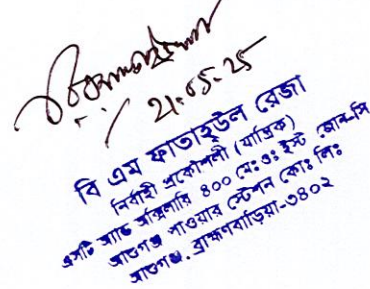 21.05.25
বি এম ফাতাহ্উল রেজা
নির্বাহী প্রকৌশলী (যান্ত্রিক)
এসটি অ্যান্ড অক্সিলারি ৪০০ মেঃওঃ ইস্ট জোন-সি
আশুগঞ্জ পাওয়ার স্টেশন কোঃ লিঃ
আশুগঞ্জ, ব্রাহ্মণবাড়িয়া-৩৪০২